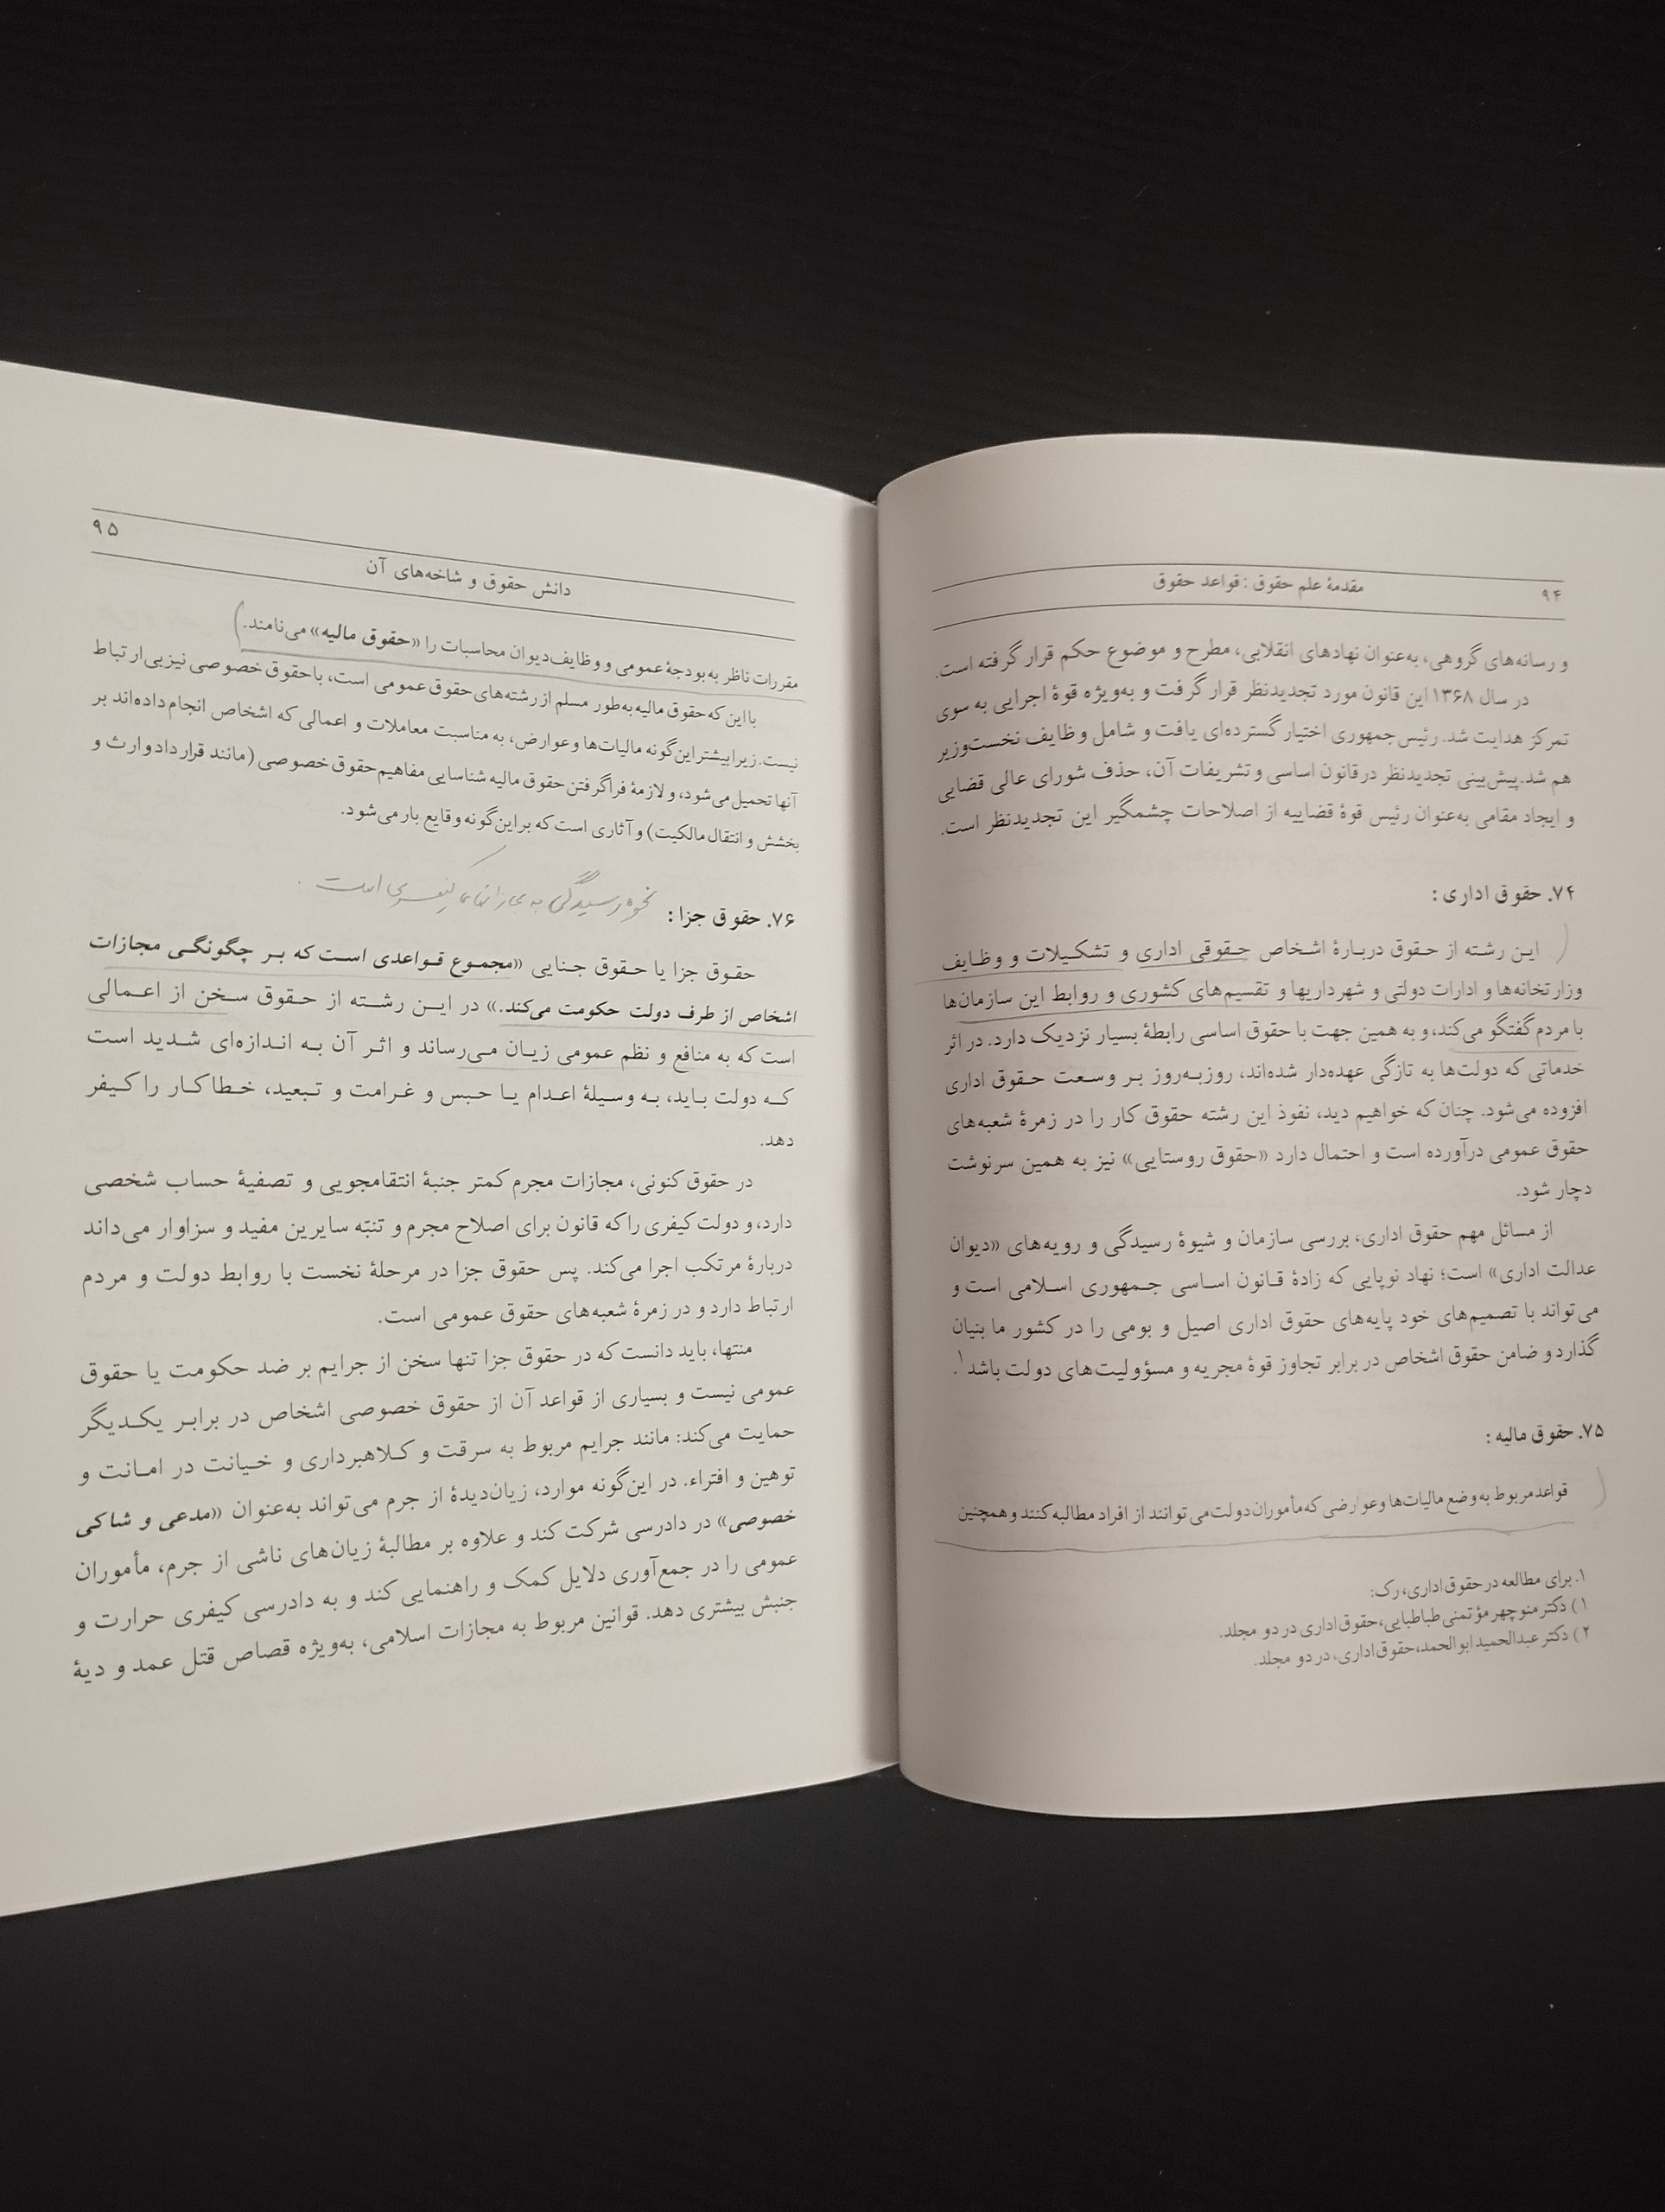 ۹۴
مقدمهٔ علم حقوق : قواعد حقوق
و رسانه‌های گروهی، به‌عنوان نهادهای انقلابی، مطرح و موضوع حکم قرار گرفته است.
در سال ۱۳۶۸ این قانون مورد تجدیدنظر قرار گرفت و به‌ویژه قوهٔ اجرایی به سوی
تمرکز هدایت شد. رئیس‌جمهوری اختیار گسترده‌ای یافت و شامل وظایف نخست‌وزیر
هم شد. پیش‌بینی تجدیدنظر در قانون اساسی و تشریفات آن، حذف شورای عالی قضایی
و ایجاد مقامی به‌عنوان رئیس قوهٔ قضاییه از اصلاحات چشمگیر این تجدیدنظر است.
۷۴. حقوق اداری :
این رشته از حقوق دربارهٔ اشخاص حقوقی اداری و تشکیلات و وظایف
وزارتخانه‌ها و ادارات دولتی و شهرداریها و تقسیم‌های کشوری و روابط این سازمان‌ها
با مردم گفتگو می‌کند، و به همین جهت با حقوق اساسی رابطهٔ بسیار نزدیک دارد. در اثر
خدماتی که دولت‌ها به تازگی عهده‌دار شده‌اند، روزبه‌روز بر وسعت حقوق اداری
افزوده می‌شود. چنان که خواهیم دید، نفوذ این رشته حقوق کار را در زمرهٔ شعبه‌های
حقوق عمومی درآورده است و احتمال دارد «حقوق روستایی» نیز به همین سرنوشت
دچار شود.
از مسائل مهم حقوق اداری، بررسی سازمان و شیوهٔ رسیدگی و رویه‌های «دیوان
عدالت اداری» است؛ نهاد نوپایی که زادهٔ قانون اساسی جمهوری اسلامی است و
می‌تواند با تصمیم‌های خود پایه‌های حقوق اداری اصیل و بومی را در کشور ما بنیان
گذارد و ضامن حقوق اشخاص در برابر تجاوز قوهٔ مجریه و مسؤولیت‌های دولت باشد۱.
۷۵. حقوق مالیه :
قواعد مربوط به وضع مالیات‌ها و عوارضی که مأموران دولت می‌توانند از افراد مطالبه کنند و همچنین
۱. برای مطالعه در حقوق اداری، رک:
۱) دکتر منوچهر مؤتمنی طباطبایی، حقوق اداری در دو مجلد.
۲) دکتر عبدالحمید ابوالحمد، حقوق اداری، در دو مجلد.
۹۵
دانش حقوق و شاخه‌های آن
مقررات ناظر به بودجهٔ عمومی و وظایف دیوان محاسبات را «حقوق مالیه» می‌نامند.
با این که حقوق مالیه به‌طور مسلم از رشته‌های حقوق عمومی است، با حقوق خصوصی نیز بی‌ارتباط
نیست. زیرا بیشتر این‌گونه مالیات‌ها و عوارض، به مناسبت معاملات و اعمالی که اشخاص انجام داده‌اند بر
آنها تحمیل می‌شود، و لازمهٔ فراگرفتن حقوق مالیه شناسایی مفاهیم حقوق خصوصی (مانند قرارداد و ارث و
بخشش و انتقال مالکیت) و آثاری است که بر این‌گونه وقایع بار می‌شود.
نحوه رسیدگی به مجازاتهای کیفری است.
۷۶. حقوق جزا :
حقوق جزا یا حقوق جنایی «مجموع قواعدی است که بر چگونگی مجازات
اشخاص از طرف دولت حکومت می‌کند.» در این رشته از حقوق سخن از اعمالی
است که به منافع و نظم عمومی زیان می‌رساند و اثر آن به اندازه‌ای شدید است
که دولت باید، به وسیلهٔ اعدام یا حبس و غرامت و تبعید، خطاکار را کیفر
دهد.
در حقوق کنونی، مجازات مجرم کمتر جنبهٔ انتقامجویی و تصفیهٔ حساب شخصی
دارد، و دولت کیفری را که قانون برای اصلاح مجرم و تنبّه سایرین مفید و سزاوار می‌داند
دربارهٔ مرتکب اجرا می‌کند. پس حقوق جزا در مرحلهٔ نخست با روابط دولت و مردم
ارتباط دارد و در زمرهٔ شعبه‌های حقوق عمومی است.
منتها، باید دانست که در حقوق جزا تنها سخن از جرایم بر ضد حکومت یا حقوق
عمومی نیست و بسیاری از قواعد آن از حقوق خصوصی اشخاص در برابر یکدیگر
حمایت می‌کند: مانند جرایم مربوط به سرقت و کلاهبرداری و خیانت در امانت و
توهین و افتراء. در این‌گونه موارد، زیان‌دیدهٔ از جرم می‌تواند به‌عنوان «مدعی و شاکی
خصوصی» در دادرسی شرکت کند و علاوه بر مطالبهٔ زیان‌های ناشی از جرم، مأموران
عمومی را در جمع‌آوری دلایل کمک و راهنمایی کند و به دادرسی کیفری حرارت و
جنبش بیشتری دهد. قوانین مربوط به مجازات اسلامی، به‌ویژه قصاص قتل عمد و دیهٔ